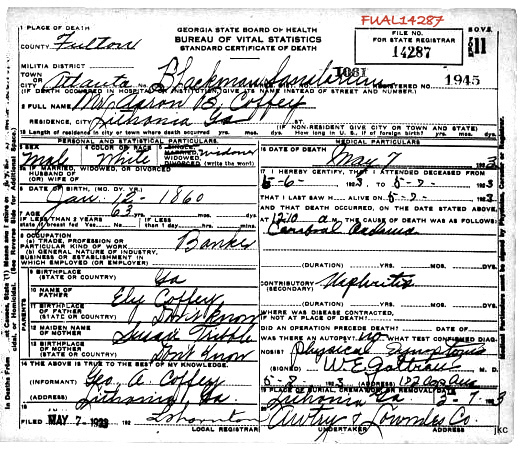 FUAL14287
1 PLACE OF DEATH
COUNTY Fulton
MILITIA DISTRICT
TOWN OR CITY Atlanta Blackman Sanitarium
(IF DEATH OCCURRED IN HOSPITAL OR INSTITUTION, GIVE ITS NAME INSTEAD OF STREET AND NUMBER.)
GEORGIA STATE BOARD OF HEALTH
BUREAU OF VITAL STATISTICS
STANDARD CERTIFICATE OF DEATH
FILE NO.
FOR STATE REGISTRAR
14287
11
1945
2 FULL NAME Mr. Aaron B. Coffey
RESIDENCE, CITY Lithonia Ga ST.
(IF NON-RESIDENT GIVE CITY OR TOWN AND STATE)
15 Length of residence in city or town where death occurred yrs. mos. ds. How long in U.S., if of foreign birth? yrs. mos. ds.
PERSONAL AND STATISTICAL PARTICULARS.
3 SEX Male
4 COLOR OR RACE White
5 SINGLE MARRIED WIDOWED DIVORCED (write the word) Widower
5a IF MARRIED, WIDOWED, OR DIVORCED
HUSBAND OF
(OR) WIFE OF
6 DATE OF BIRTH. (MO. DY. YR.)
Jan. 15 - 1860
7 AGE 63 yrs. mos. ds.
IF LESS THAN 2 YEARS state if breast fed Yes No
IF LESS than 1 day hrs. min.
8 OCCUPATION
(a) TRADE, PROFESSION OR PARTICULAR KIND OF WORK Banker
(b) GENERAL NATURE OF INDUSTRY, BUSINESS OR ESTABLISHMENT IN WHICH EMPLOYED (OR EMPLOYER)
PARENTS
9 BIRTHPLACE (STATE OR COUNTRY) Ga
10 NAME OF FATHER Ely Coffey
11 BIRTHPLACE OF FATHER (STATE OR COUNTRY) Don't know
12 MAIDEN NAME OF MOTHER Susan Tribble
13 BIRTHPLACE OF MOTHER (STATE OR COUNTRY) Don't Know
14 THE ABOVE IS TRUE TO THE BEST OF MY KNOWLEDGE.
(INFORMANT) Geo. A. Coffey
(ADDRESS) Lithonia, Ga.
FILED MAY 7-1923 192
LOCAL REGISTRAR
MEDICAL PARTICULARS
16 DATE OF DEATH May 7 192 3
17 I HEREBY CERTIFY, THAT I ATTENDED DECEASED FROM
5-6- 192 3, TO 5-7- 192 3
THAT I LAST SAW H ALIVE ON 5-7- 192 3
AND THAT DEATH OCCURRED, ON THE DATE STATED ABOVE. AT
12:10 a m, THE CAUSE OF DEATH WAS AS FOLLOWS:
Cerebral Oedema
(DURATION) YRS. MOS. DYS.
CONTRIBUTORY (SECONDARY) Nephritis
(DURATION) YRS. MOS. DYS.
WHERE WAS DISEASE CONTRACTED, IF NOT AT PLACE OF DEATH?
DID AN OPERATION PRECEDE DEATH? DATE OF
WAS THERE AN AUTOPSY? no WHAT TEST CONFIRMED DIAG-
NOSIS? Physical Symptoms
(SIGNED) M. D.
(ADDRESS)
19 PLACE OF BURIAL, CREMATION, OR REMOVAL DATE
Lithonia Ga 5-7-23
20 Awtry & Lowndes Co.
UNDERTAKER ADDRESS
jkc